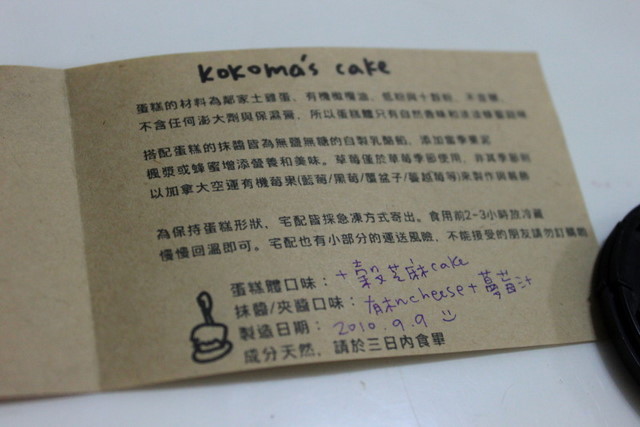 kokoma's cake
蛋糕的材料為鄰家土雞蛋, 有機橄欖油, 低粉與十穀粉,
不含任何澎大劑與保濕膏, 所以蛋糕體只有自然香味和淡淡蜂蜜甜味
搭配蛋糕的抹醬皆為無鹽無糖的自製乳酪餡, 添加當季果泥
楓漿或蜂蜜增添營養和美味。草莓僅於草莓季節使用, 非其季節則
以加拿大空運有機莓果(藍莓/黑莓/覆盆子/蔓越莓等)來製作與裝飾
為保持蛋糕形狀, 宅配皆採急凍方式寄出。食用前2-3小時放冷藏
慢慢回溫即可。宅配也有小部分的運送風險, 不能接受的朋友請勿訂購喲
蛋糕體口味: 十穀芝麻cake
抹醬/夾醬口味: 有机cheese+蔓莓汁
製造日期: 2010.9.9
成分天然, 請於三日內食畢